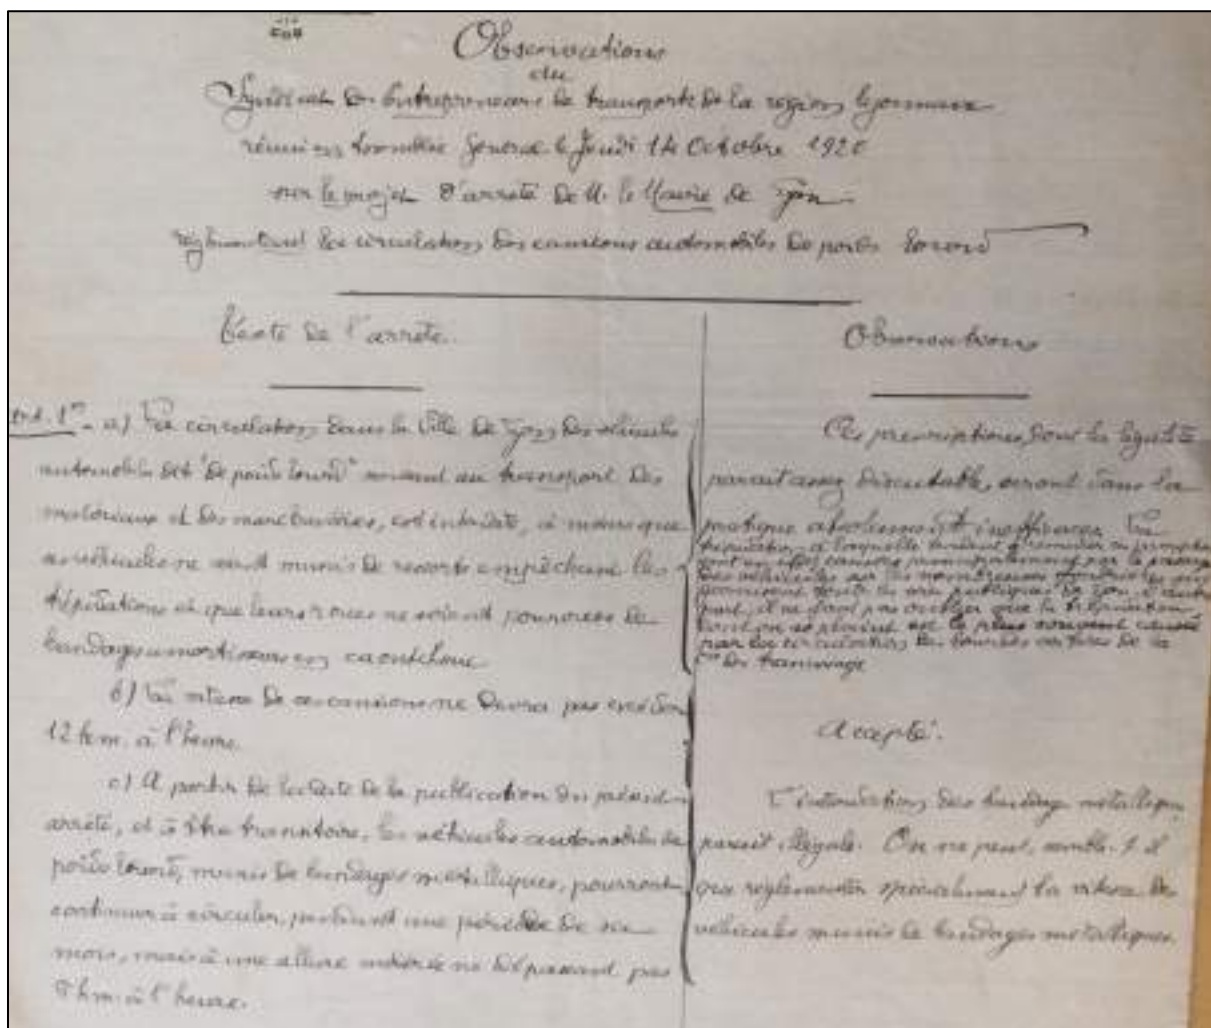 Observations
du
Syndicat des Entrepreneurs de transports de la région lyonnaise
réuni en Assemblée Générale le Jeudi 14 Octobre 1920
sur le projet d'arrêté de M. le Maire de Lyon
réglementant la circulation des camions automobiles de poids lourd
Texte de l'arrêté.
Art. 1er - a) La circulation dans la Ville de Lyon des véhicules
automobiles dits "de poids lourd" servant au transport des
matériaux et des marchandises, est interdite, à moins que
ces véhicules ne soient munis de ressorts empêchant les
trépidations et que leurs roues ne soient pourvues de
bandages amortisseurs en caoutchouc
b) La vitesse de ces camions ne devra pas excéder
12 km. à l'heure.
c) A partir de la date de la publication du présent
arrêté, et à titre transitoire, les véhicules automobiles de
poids lourd, munis de bandages métalliques, pourront
continuer à circuler, pendant une période de six
mois, mais à une allure modérée ne dépassant pas
km. à l'heure.
Observations
Ces prescriptions, dont la légalité
parait assez discutable, seront dans la
pratique absolument inefficaces. La
trépidation à laquelle tendent à remédier ces
sont en effet causées par le passage
des véhicules sur les qui
garnissent toutes les voies publiques de Lyon. D'autre
part, il ne faut pas oublier que la trépidation
dont on se plaint est le plus souvent causée
par la circulation des lourdes voitures de la
Cie des tramways
Accepté.
L'interdiction des bandages métalliques
parait illégale. On ne peut, semble-t-il
que réglementer spécialement la vitesse des
véhicules munis de bandages métalliques.